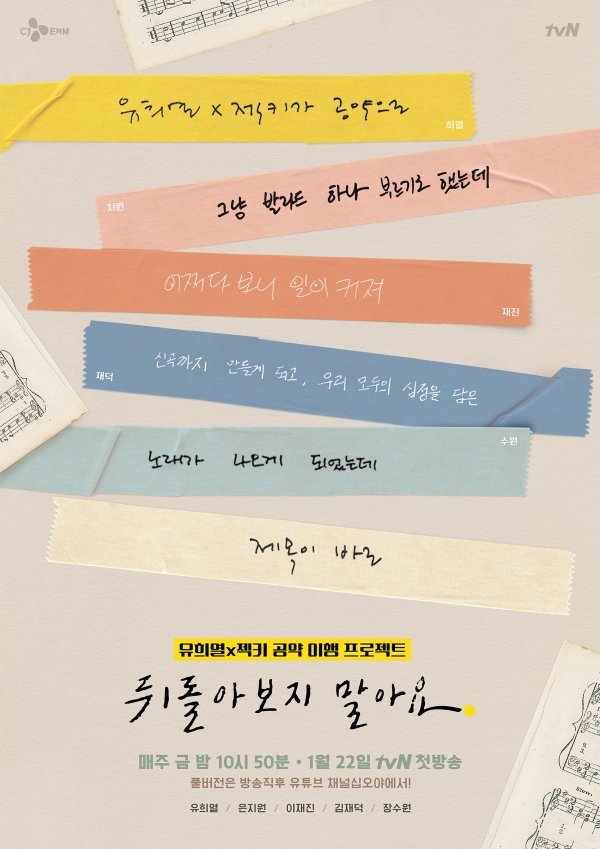 CJ ENM
tvN
유희열 x 젝키가 공약으로
희열
지원
그냥 발라드 하나 부르기로 했는데
어쩌다 보니 일이 커져
재진
재덕
신곡까지 만들게 되고, 우리 모두의 심정을 담은
수원
노래가 나오게 되었는데
제목이 바로
유희열x젝키 공약 이행 프로젝트
뒤돌아보지 말아요.
매주 금 밤 10시 50분 · 1월 22일 tvN 첫방송
풀버전은 방송직후 유튜브 채널십오야에서!
유희열 / 은지원 / 이재진 / 김재덕 / 장수원
Slow.